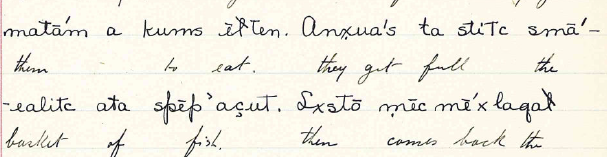 matā́m a kums ēł'ten. Anx̣ua's ta stitc smā'-
them to eat. they get full the
-ealitc ata spēp'açut. Lxstō ṃēc mē'x laqał
basket of fish. then comes back the